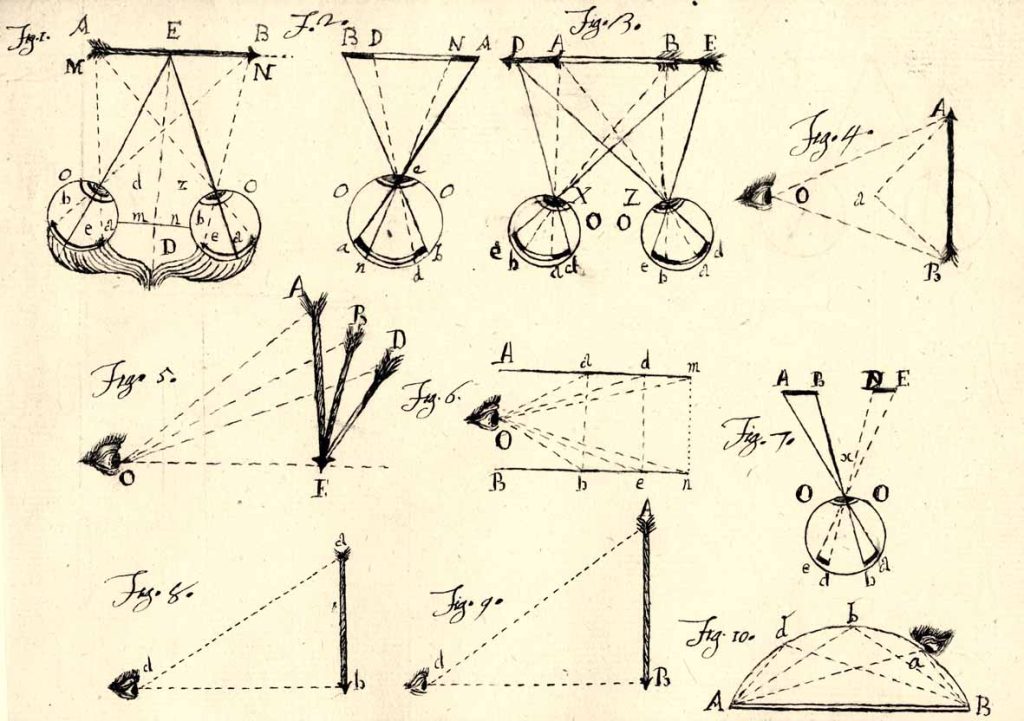 Fig. 1.
A E B
M N
O d z O
b e a m n b e a
D
F. 2.
B D N A
e
O O
a n d b
Fig. 3.
D A B E
X Z
O O
e b a d e b a d
Fig. 4.
A
O a
B
Fig. 5.
A B D
O E
Fig. 6.
A a d m
O
B b e n
Fig. 7.
A B D E
x
O O
e d b a
Fig. 8.
a
d b
Fig. 9.
A
d B
Fig. 10.
d b a
A B